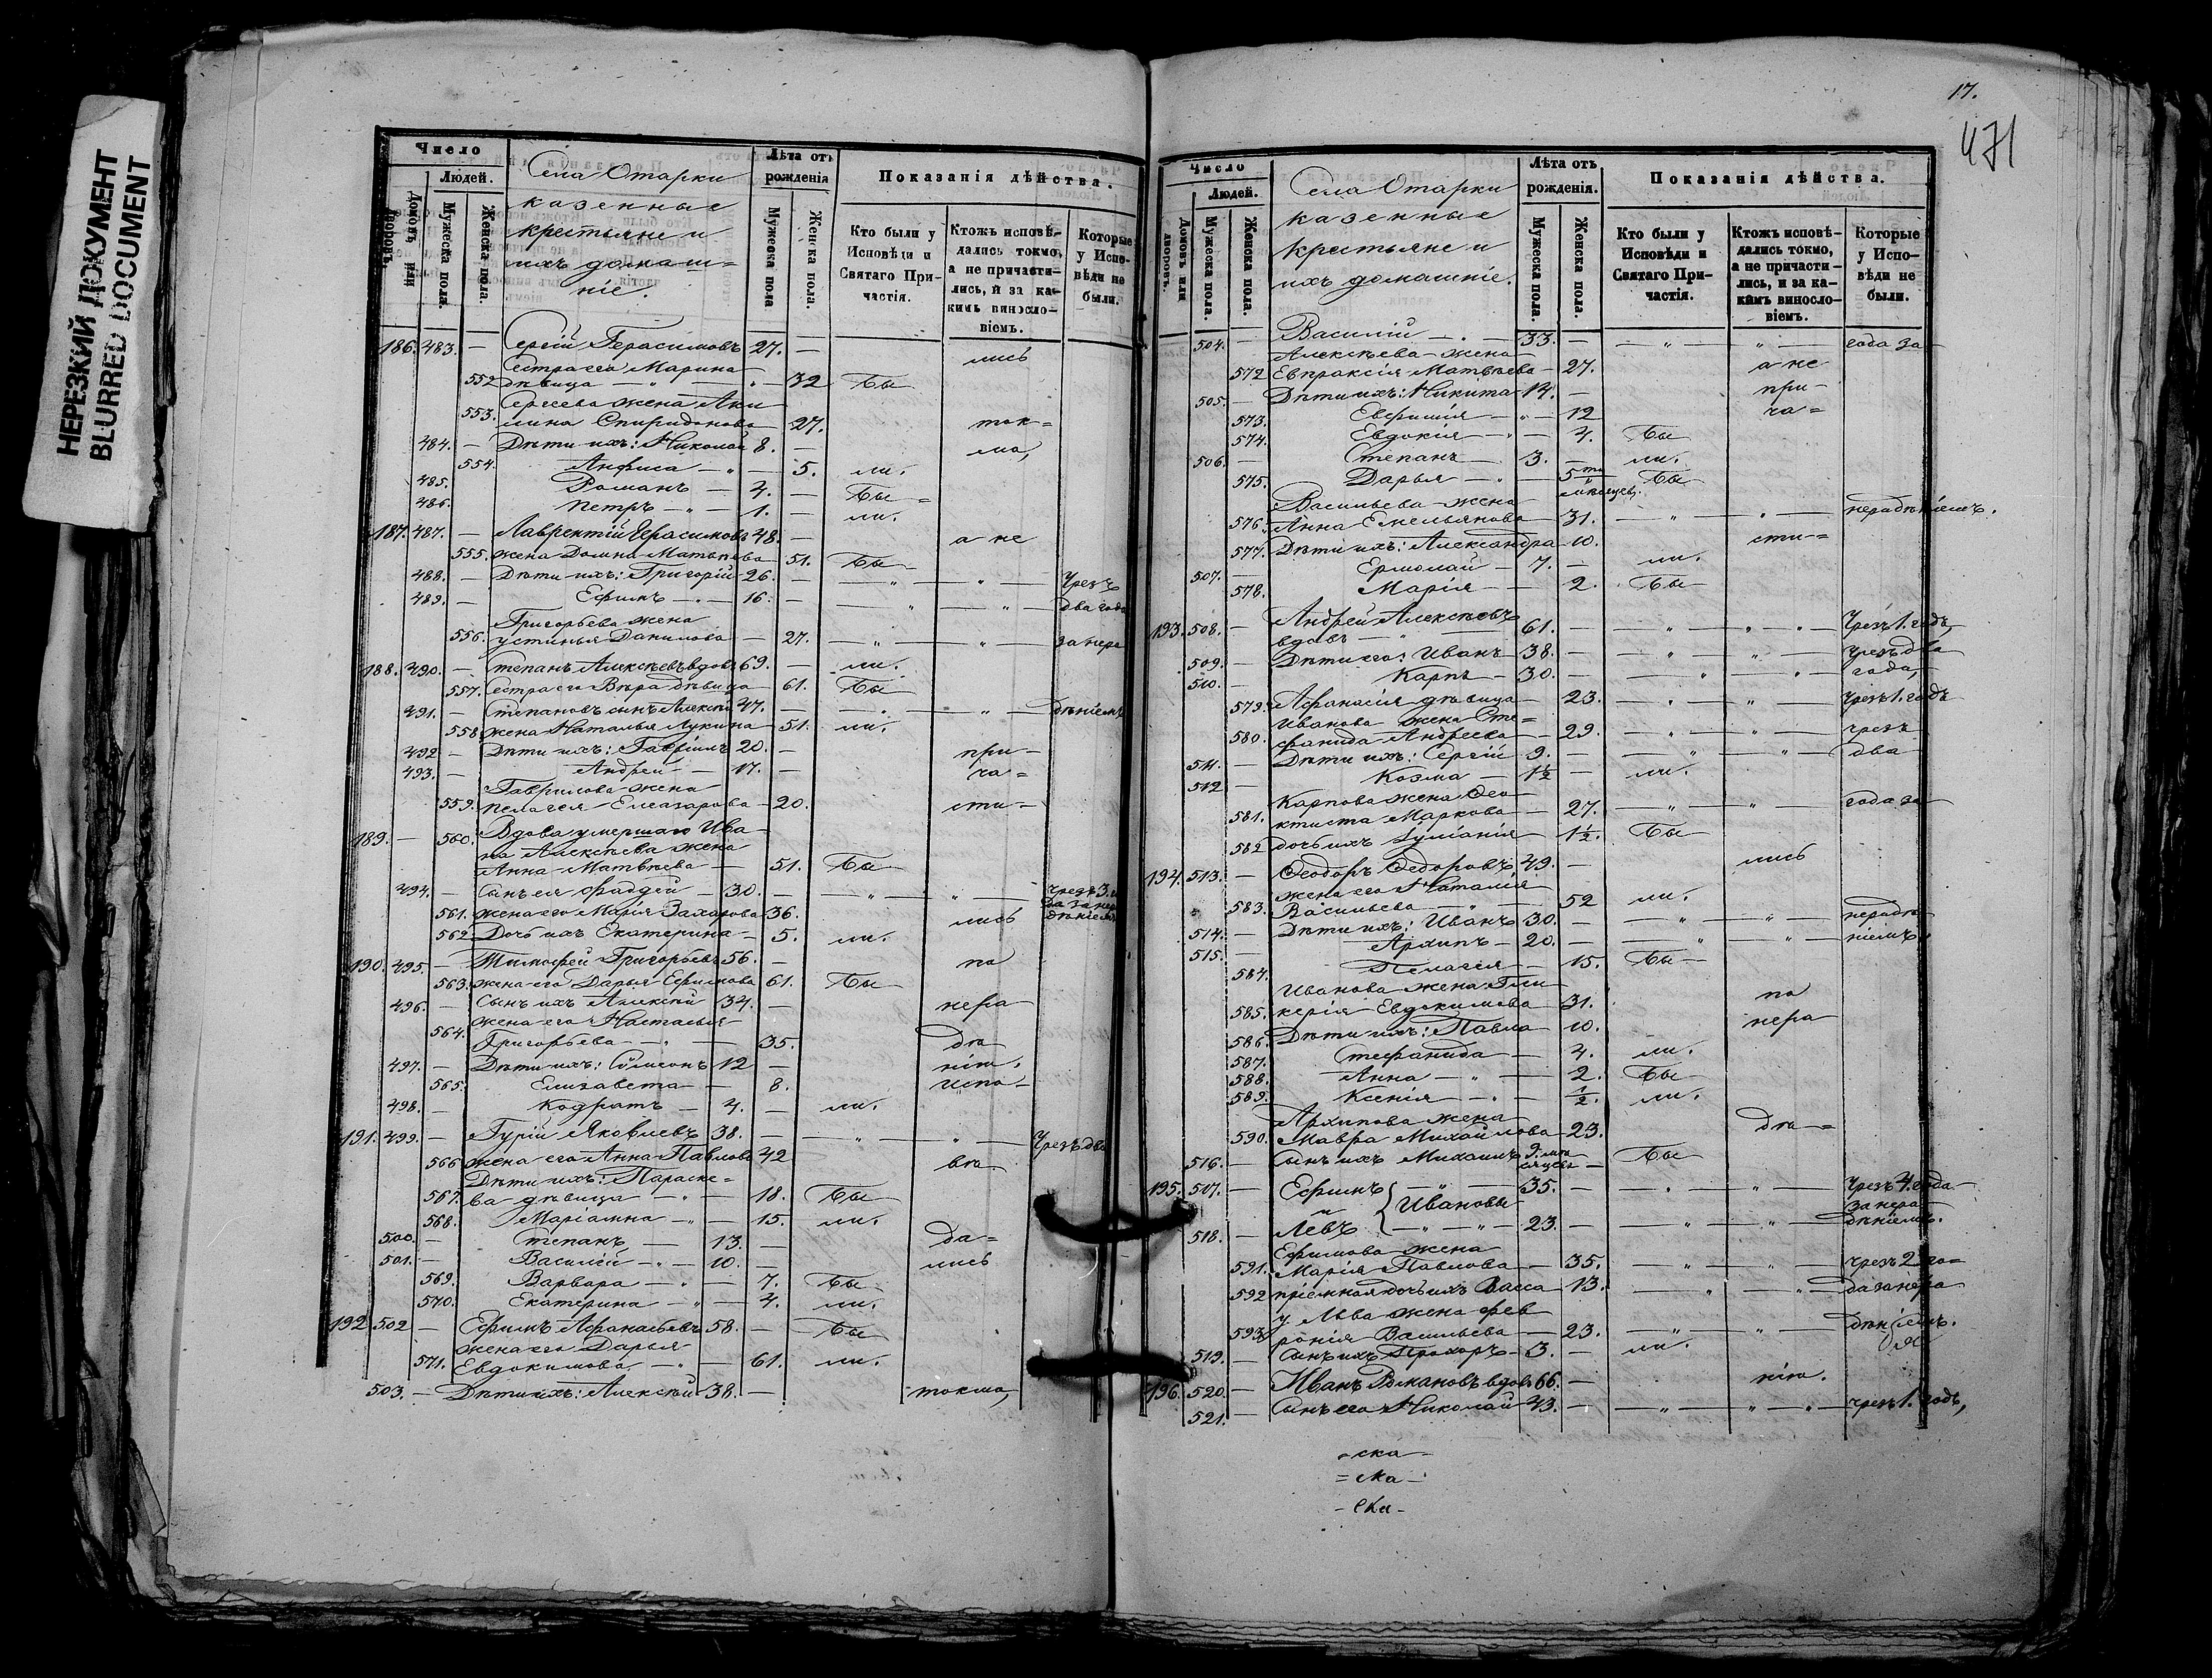 НЕРЕЗКИЙ ДОКУМЕНТ
BLURRED DOCUMENT
Число
Людей.
Домовъ или дворовъ.
Мужеска пола.
Женска пола.
Села Отарки
казенные
крестьяне и
ихъ домаш=
ніе.
Лѣта отъ
рожденія
Мужеска пола
Женска пола.
Показанія дѣйства.
Кто были у
Исповѣди и
Святаго При-
частія.
Ктожъ исповѣ-
дались токмо,
а не причасти-
лись, и за ка-
кимъ виносло-
віемъ.
Которые
у Испо-
вѣди не
были.
186. 483. — Сергій Герасимовъ 27. — лись
Сестра его Марина
552 дѣвица — " — 32 Бы
Сергеева жена Аки
553. лина Спиридонова 27. ток=
484. — Дѣти ихъ: Николай 8. — мо,
554. Анфиса — " — 5. ли.
485. Романъ — 4. — Бы =
486. Петръ — " — 1. — ли.
187. 487. — Лаврентій Герасимовъ 48. — а не
555. жена Домна Матвѣева 51. Бы
488. — Дѣти ихъ: Григорій 26. — " — " — Чрезъ
489. — Ефимъ — " — 16. — " — " — два года
Григорьева жена
556. Устинья Данилова — 27. — " — " — за нера
188. 490. — Степанъ Алексѣевъ вдовъ 69. — ли.
557. Сестра его Вѣра дѣвица 61. Бы
491. — Степановъ сынъ Алексѣй 47. — " — " — дѣніемъ
558. жена Наталья Лукина 51. ли.
492 — Дѣти ихъ: Гаврілъ 20. — при-
493. — Андрей — 17. — ча=
Гаврилова жена
559. Пелагея Елеазарова — 20. сти-
189. — 560. Вдова умершаго Ива-
на Алексѣева жена
Анна Матвѣева — 51. Бы
494. — Сынъ ея Фаддей — 30. — " — " — чрезъ 3. го
да за нера
561. жена его Марія Захарова 36. лись дѣніемъ
562 Дочь ихъ Екатерина — 5. ли.
190. 495. — Тимофей Григорьевъ 56. — по
563. жена его Дарья Ефимова 61. Бы
496. — Сынъ ихъ Алексѣй 34. — нера
жена его Настасья
564. Григорьева — " — 35. дѣ
497. — Дѣти ихъ: Симеонъ 12 — нію.
565. Елизавета — 8. испо-
498. — Кодратъ — 4. — ли.
191. 499. — Гурій Яковлевъ 38. — " — " — Чрезъ два
566 жена его Анна Павлова 42 вѣ
Дѣти ихъ: Параске=
567. ва дѣвица — " — 18. Бы
568. Маріамна — " — 15. ли.
500. — Степанъ — 13. — да=
501. — Василій — " — 10. — лись
569. Варвара — " — 7. Бы
570. Екатерина — " — 4. ли.
192 502 — Ефимъ Афанасьевъ 58. — Бы
жена его Дарья
571. Евдокимова — " — 61. ли.
503. — Дѣти ихъ: Алексѣй 38. — токмо,
17.
471
Число
Людей.
Домовъ или дворовъ.
Мужеска пола.
Женска пола.
Села Отарки
казенные
крестьяне и
ихъ домашніе.
Лѣта отъ
рожденія.
Мужеска пола.
Женска пола.
Показанія дѣйства.
Кто были у
Исповѣди и
Святаго При-
частія.
Ктожъ исповѣ-
дались токмо,
а не причасти-
лись, и за ка-
кимъ виносло-
віемъ.
Которые
у Испо-
вѣди не
были.
504. — Василій — " — 33. — " — " — года за
Алексѣева жена
572 Евпраксія Матвѣева — 27. а не
505. — Дѣти ихъ: Никита 14. — при-
573. Евфимія — " — 12 ча=
574. Евдокія — " — 4. Бы
506. — Степанъ — 3. — ли.
575. Дарья — " — 5ти мѣсяцевъ. Бы
Васильева жена
576. Анна Емельянова — 31. — " — " — нерадѣніемъ.
577. Дѣти ихъ: Александра — 10. сти=
507. — Ермолай — 7. — ли.
578. Марія — 2. Бы
193. 508. — Андрей Алексѣевъ
вдовъ — " — 61. — " — " — " — Чрезъ 1. годъ,
509. — Дѣти его: Иванъ 38. — " — " — чрезъ два
510. — Карпъ — 30. — " — " — года,
579. Афанасія дѣвица — 23. — " — " — чрезъ 1. годъ
Иванова жена Сте=
580. фанида Андреева — 29. — " — " — чрезъ
511. — Дѣти ихъ: Сергій 9. — " — " — два
512 — Козма — 1½ — ли.
Карпова жена Фео
581. ктиста Маркова — 27. — " — " — года за
582 дочь ихъ Іуліанія — 1½. Бы
194. 513. — Ѳеодоръ Ѳедоровъ 49. — лись
жена его Наталія
583. Васильева — " — 52 ли.
514. — Дѣти ихъ: Иванъ 30. — " — " — нерадѣ
515. — Архипъ — 20. — " — " — ніемъ.
584. Пелагея — 15. Бы
Иванова жена Гли
585. керія Евдокимова — 31. по
586. Дѣти ихъ: Павла — 10. нера
587. Стефанида — 4. ли.
588. Анна — " — 2. Бы
589. Ксенія — " — ½. ли.
Архипова жена
590. Мавра Михайлова — 23. дѣ=
516. — Сынъ ихъ Михаилъ 9. мѣ
сяцевъ — Бы
195. 517. — Ефимъ — " — 35. — " — " — Чрезъ 4. года
и } Ивановы за нера
518. — Левъ — " — " — 23. — " — " — дѣніемъ.
Ефимова жена
591. Марія Павлова — 35. — " — " — чрезъ 2 го=
592 пріемная дочь ихъ Васса 13. — " — " — да за нера
у Льва жена Фев
593 ронія Васильева — 23. — " — " — дѣніемъ.
519. — Сынъ ихъ Прохоръ — 3. — ли.
196. 520. — Иванъ Романовъ вдовъ 66. — нію.
521. — Сынъ его Николай 43. — " — " — " — чрезъ 1. годъ,
= ска -
= ска -
- ска -